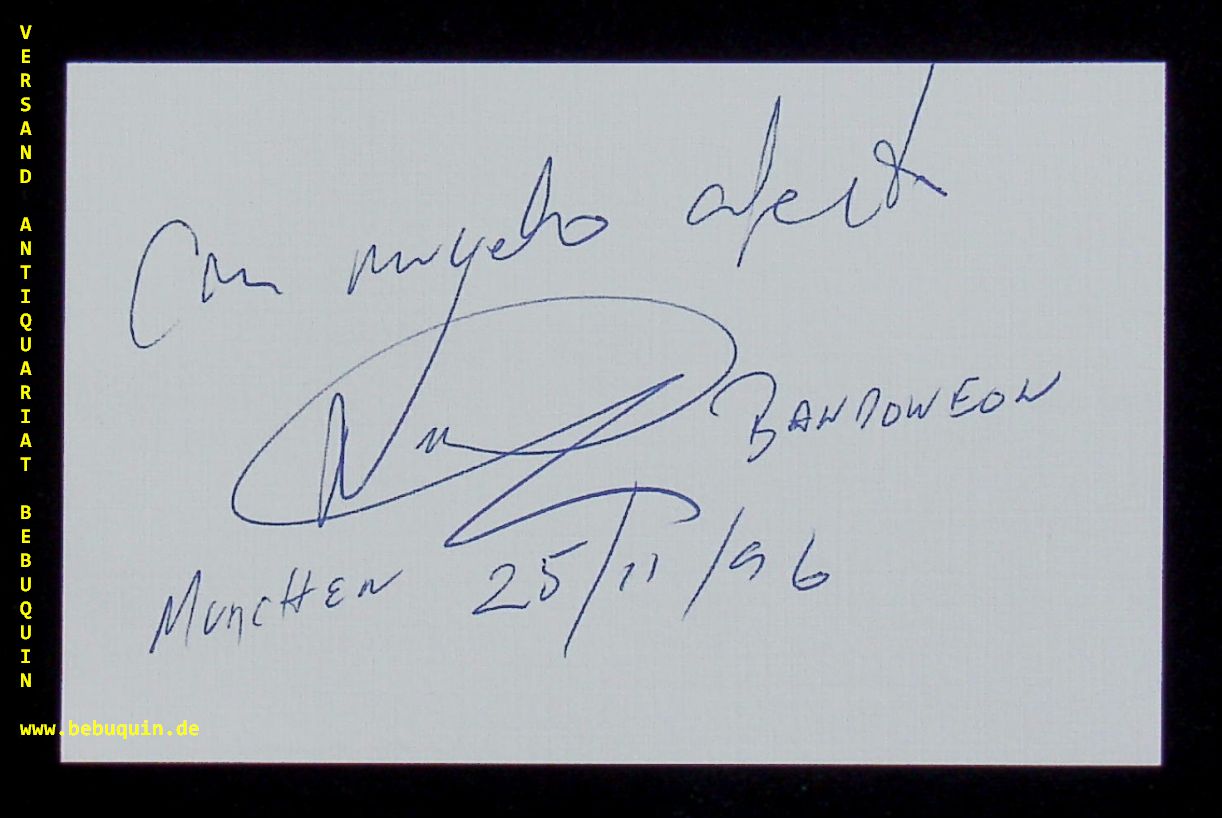 VERSAND ANTIQUARIAT BEBUQUIN
Con mucho afecto
BANDONEON
MUNCHEN 25/11/96
www.bebuquin.de